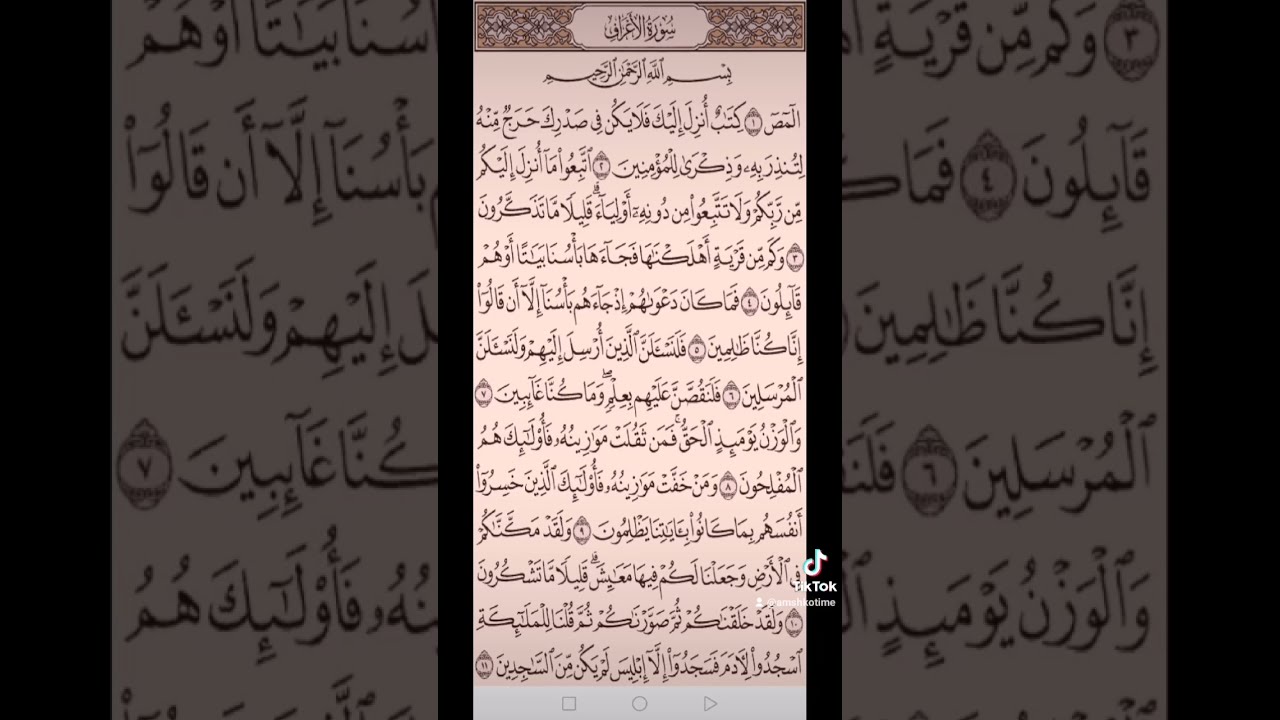 سُورَةُ الْأَعْرَافِ
بِسْمِ ٱللَّهِ ٱلرَّحْمَٰنِ ٱلرَّحِيمِ
الٓمٓصٓ ١ كِتَٰبٌ أُنزِلَ إِلَيْكَ فَلَا يَكُن فِى صَدْرِكَ حَرَجٌ مِّنْهُ
لِتُنذِرَ بِهِۦ وَذِكْرَىٰ لِلْمُؤْمِنِينَ ٢ ٱتَّبِعُوا۟ مَآ أُنزِلَ إِلَيْكُم
مِّن رَّبِّكُمْ وَلَا تَتَّبِعُوا۟ مِن دُونِهِۦٓ أَوْلِيَآءَ ۗ قَلِيلًا مَّا تَذَكَّرُونَ
٣ وَكَم مِّن قَرْيَةٍ أَهْلَكْنَٰهَا فَجَآءَهَا بَأْسُنَا بَيَٰتًا أَوْ هُمْ
قَآئِلُونَ ٤ فَمَا كَانَ دَعْوَىٰهُمْ إِذْ جَآءَهُم بَأْسُنَآ إِلَّآ أَن قَالُوٓا۟
إِنَّا كُنَّا ظَٰلِمِينَ ٥ فَلَنَسْـَٔلَنَّ ٱلَّذِينَ أُرْسِلَ إِلَيْهِمْ وَلَنَسْـَٔلَنَّ
ٱلْمُرْسَلِينَ ٦ فَلَنَقُصَّنَّ عَلَيْهِم بِعِلْمٍ ۖ وَمَا كُنَّا غَآئِبِينَ ٧
وَٱلْوَزْنُ يَوْمَئِذٍ ٱلْحَقُّ ۚ فَمَن ثَقُلَتْ مَوَٰزِينُهُۥ فَأُو۟لَٰٓئِكَ هُمُ
ٱلْمُفْلِحُونَ ٨ وَمَنْ خَفَّتْ مَوَٰزِينُهُۥ فَأُو۟لَٰٓئِكَ ٱلَّذِينَ خَسِرُوٓا۟
أَنفُسَهُم بِمَا كَانُوا۟ بِـَٔايَٰتِنَا يَظْلِمُونَ ٩ وَلَقَدْ مَكَّنَّٰكُمْ
فِى ٱلْأَرْضِ وَجَعَلْنَا لَكُمْ فِيهَا مَعَٰيِشَ ۗ قَلِيلًا مَّا تَشْكُرُونَ
١٠ وَلَقَدْ خَلَقْنَٰكُمْ ثُمَّ صَوَّرْنَٰكُمْ ثُمَّ قُلْنَا لِلْمَلَٰٓئِكَةِ
ٱسْجُدُوا۟ لِـَٔادَمَ فَسَجَدُوٓا۟ إِلَّآ إِبْلِيسَ لَمْ يَكُن مِّنَ ٱلسَّٰجِدِينَ ١١
TikTok
@amshkotime